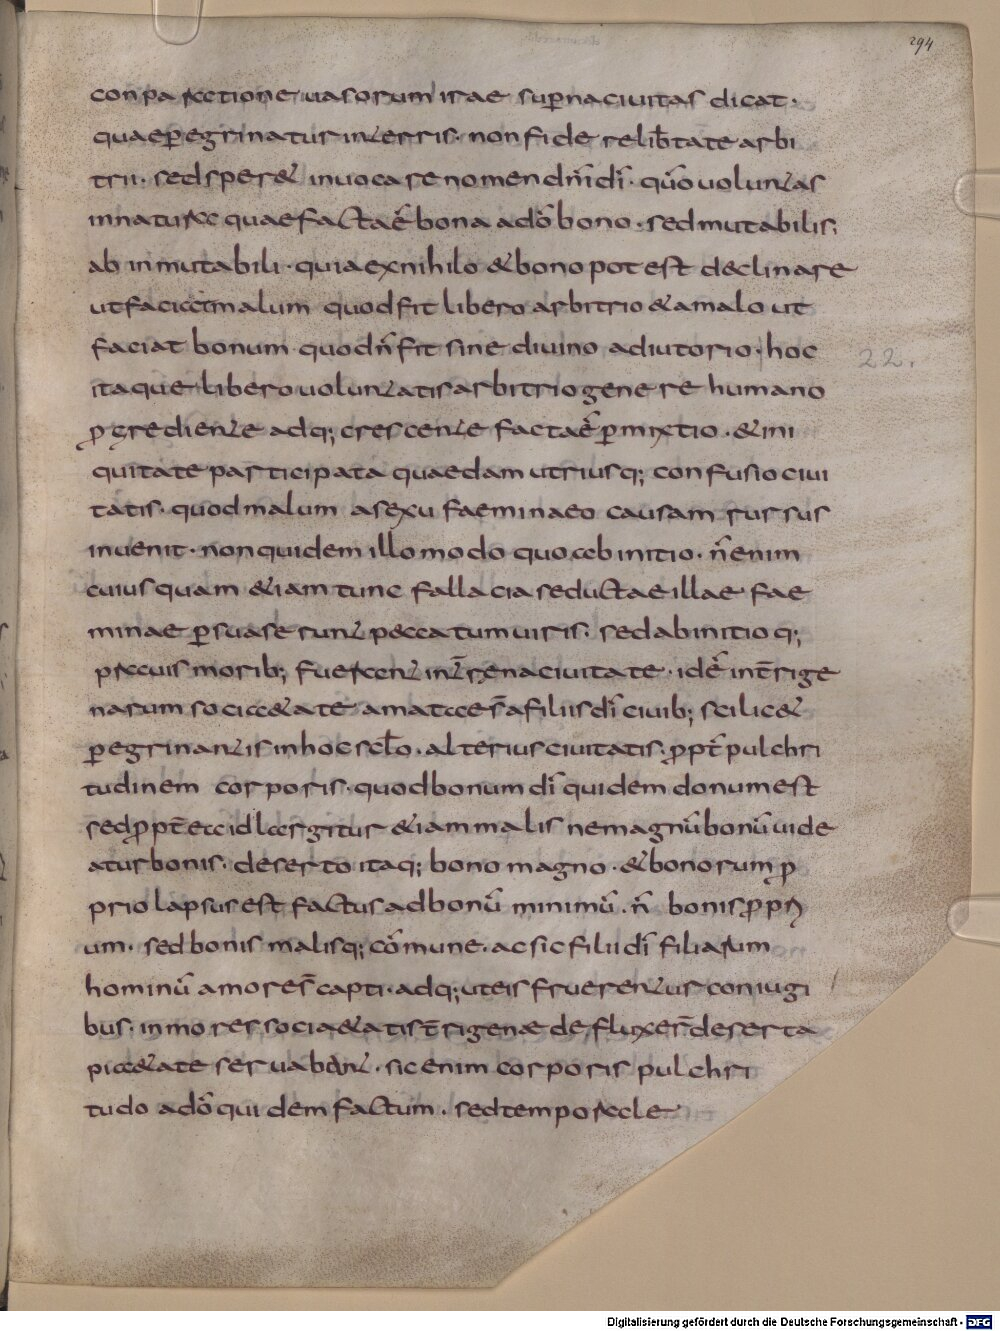 294
conparatione uasorum irae supnaciuitas dicat·
quaepegrinatur interris· nonfide relib̄tate arbi
trii· sedsperet inuocare nomen dn̄i dī· qūo uoluntas
innatura quae facta ē bona adō bono· sed mutabilis·
ab inmutabili· quia exnihilo & bono potest declinare
ut faciat malum quod fit libero arbitrio & amalo ut
faciat bonum· quod n̄ fit sine diuino adiutorio· hoc
22.
itaque libero uoluntatis arbitrio genere humano
p̱grediente adq; crescente facta ē pmixtio· & ini
quitate participata quaedam utriusq; confusio ciui
tatis· quod malum asexu faeminaeo causam rursus
inuenit· non quidem illo modo quo ab initio· n̄ enim
cuiusquam &iam tunc fallacia seductae illae fae
minae psuaserunt peccatum uiris· sed ab initio q;
prauis morib; fuerant int̄rena ciuitate· idē int̄rige
narum soci&ate amata es̄ afiliis dī ciuib; scilic&
pegrinantis in hoc sc̄lo· alterius ciuitatis· p̱pt̄ pulchri
tudinem corporis· quod bonum dī quidem donum est
sed p̱pt̄ea id largitur &iam malis ne magnū bonū uide
atur bonis· deserto itaq; bono magno· & bonorum p̱
prio lapsus est factus ad bonū minimū· n̄ bonis p̱pri
um· sed bonis malisq; cōmune· ac sic filii dī filiarum
hominū amore s̄ capti· adq; ut eis fruerentur coniugi
bus· in mores soci&atis t̄rigenae defluxer̄ deserta
pi&ate seruabant· sic enim corporis pulchri
tudo adō quidem factum· sed temporale
Digitalisierung gefördert durch die Deutsche Forschungsgemeinschaft - DFG